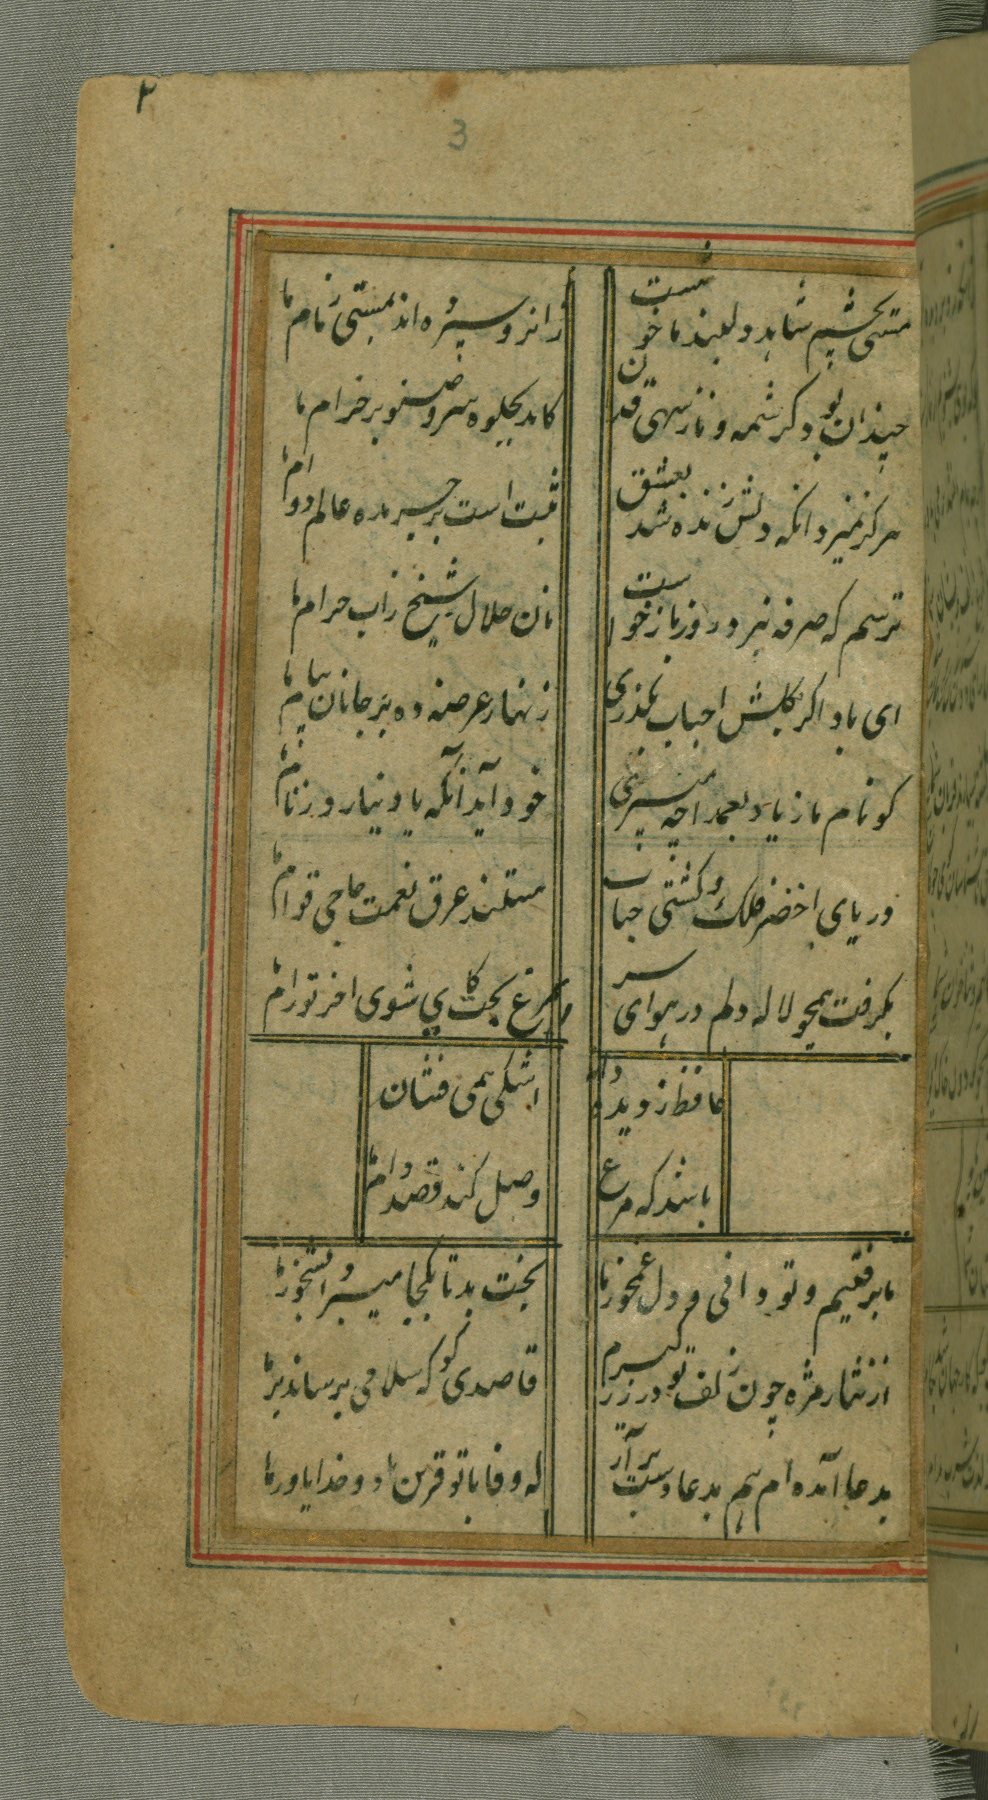 ۳
3
مستی بچشم شاهد دلبند ما خوشست
زانرو سپرده اند بمستی زمام ما
چندان بود کرشمه و ناز سهی قدان
کاید بجلوه سرو صنوبر خرام ما
هرکز نمیرد انکه دلش زنده شد بعشق
ثبت است بر جریده عالم دوام ما
ترسم که صرفه نبرد روز بازخواست
نان حلال شیخ ز آب حرام ما
ای باد اکر بکلشن احباب بکذری
زنهار عرضه ده بر جانان پیام ما
کو نام ما ز یاد بعمدا چه میبری
خود آید آنکه یاد نیارد ز نام ما
دریای اخضر فلک و کشتی
هستند غرق نعمت حاجی قوام ما
بکرفت همچو لاله دلم در هوای سرو
ای مرغ بخت کی شوی اخر تو رام ما
حافظ ز دیده دانه
اشکی همی فشان
باشد که مرغ
وصل کند قصد دام ما
ما برفتیم و تو دانی و دل غمخور ما
بخت بد تا بکجا میبرد ابشخور ما
از نثار مژه چون زلف تو در زر کیرم
قاصدی کو که سلامی برساند بر ما
بدعا آمده ام هم بدعا دست برآر
که وفا با تو قرین باد و خدا یاور ما